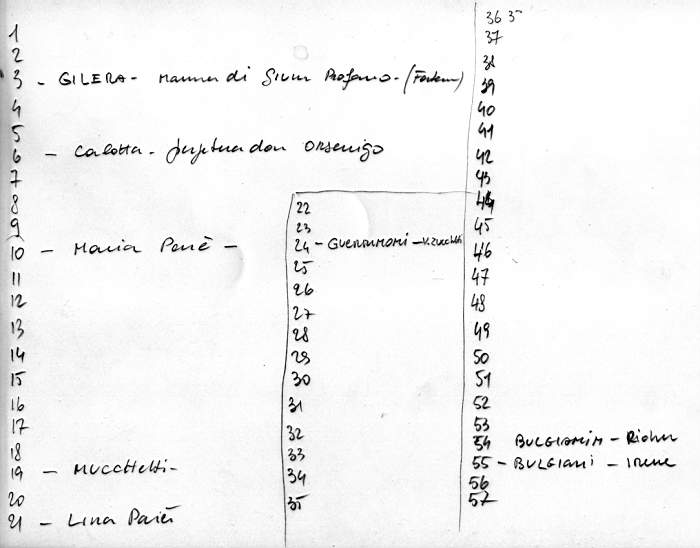 1
2
3 - GILERA - Mamma di Givm Profano - (Fontem)
4
5
6 - Carlotta - perpetua don Orsenigo
7
8
9
10 - Maria Penè -
11
12
13
14
15
16
17
18
19 - MUCCHETTI -
20
21 - Lina
22
23
24 - GUERRAMOMI - V. Zucchetti
25
26
27
28
29
30
31
32
33
34
35
36
37
38
39
40
41
42
43
44
45
46
47
48
49
50
51
52
53
54
55 - BULGIANI - Irene
56
57